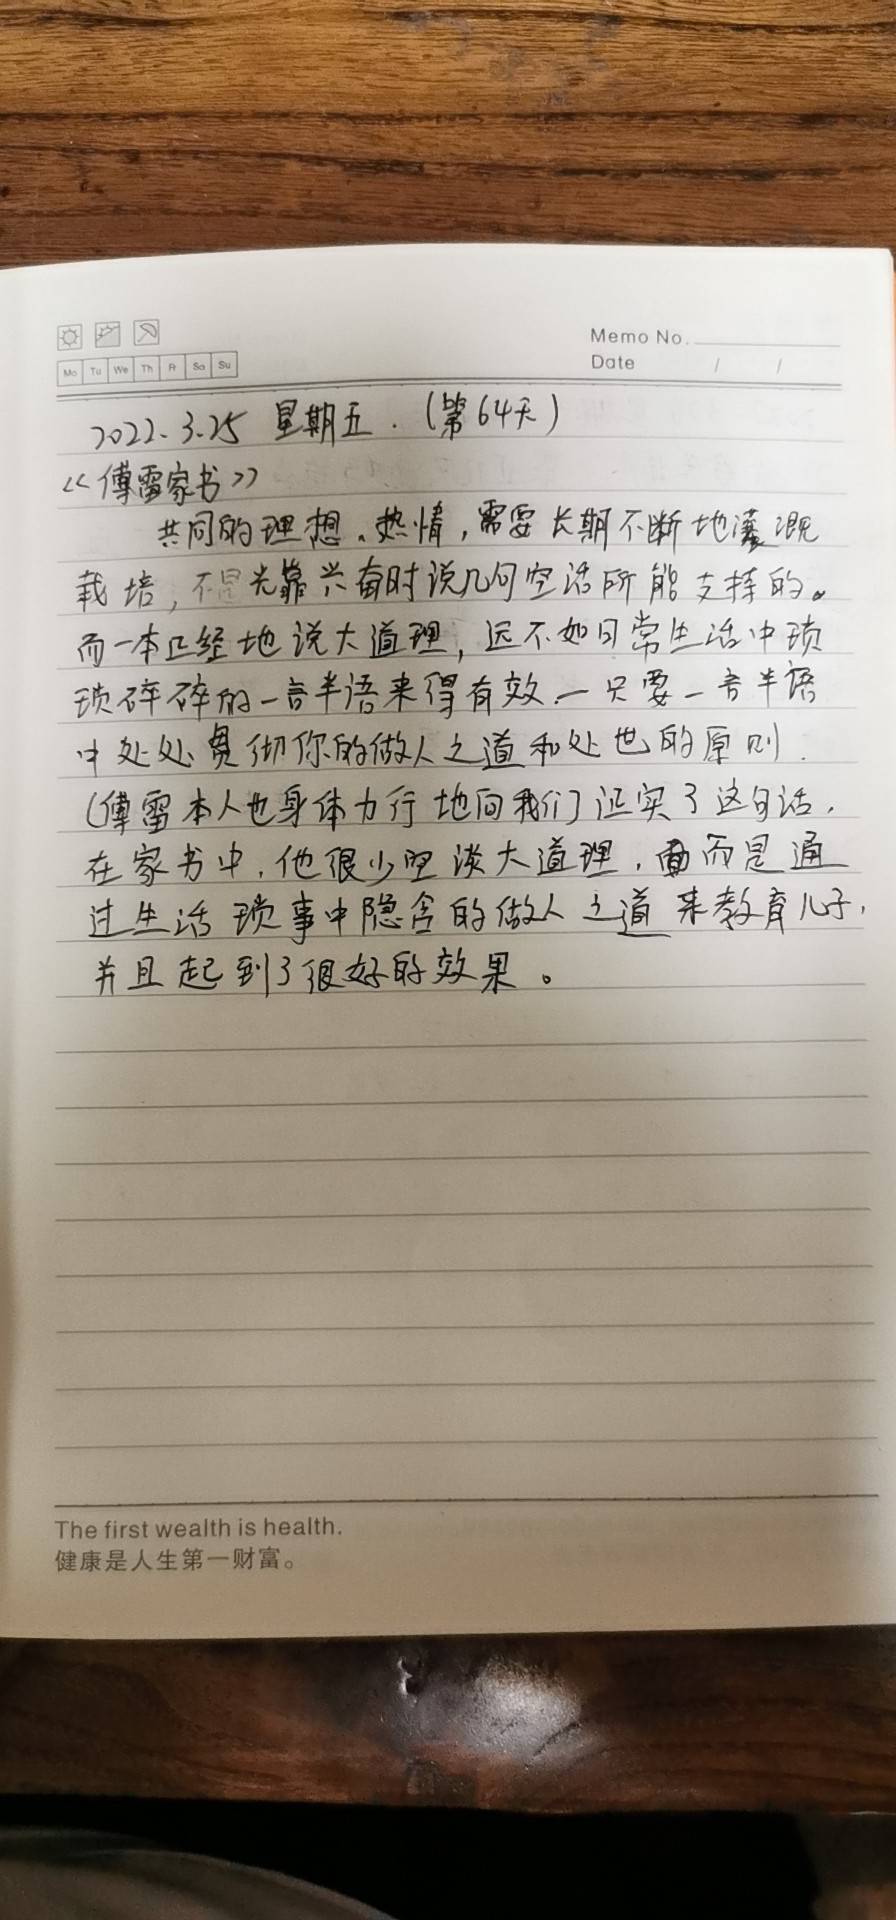 Memo No.
Mo Tu We Th Fr Sa Su
Date / /
2022.3.25 星期五.(第64天)
《傅雷家书》
共同的理想、热情,需要长期不断地灌溉
栽培,不是光靠兴奋时说几句空话所能支持的。
而一本正经地说大道理,远不如日常生活中琐
琐碎碎的一言半语来得有效.一只要一言半语
中处处贯彻你的做人之道和处世的原则.
(傅雷本人也身体力行地向我们证实了这句话,
在家书中,他很少空谈大道理,而是通
过生活琐事中隐含的做人之道来教育儿子,
并且起到了很好的效果。
The first wealth is health.
健康是人生第一财富。